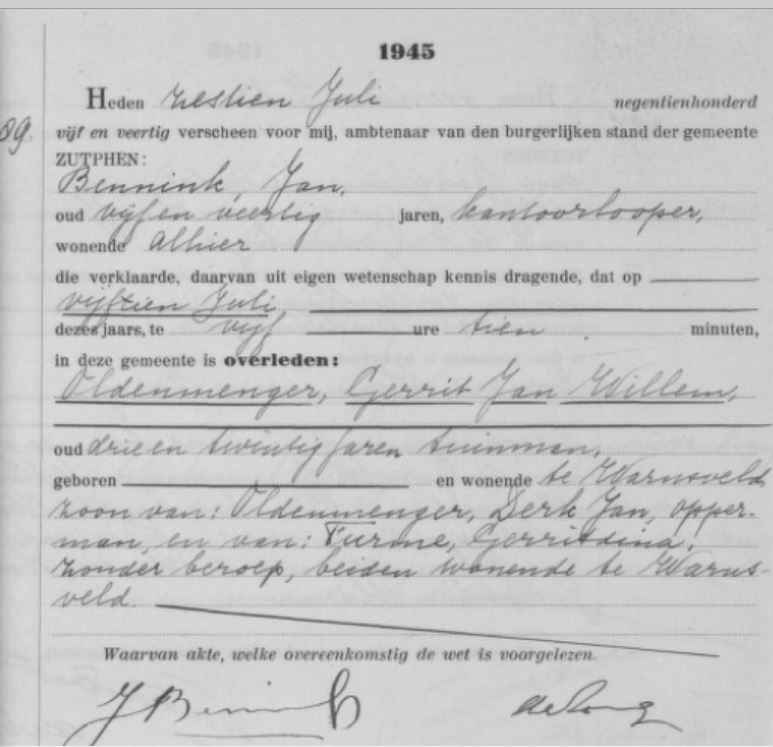 1945
Heden zestien Juli negentienhonderd
89. vijf en veertig verscheen voor mij, ambtenaar van den burgerlijken stand der gemeente
ZUTPHEN:
Bennink, Jan,
oud vijf en veertig jaren, kantoorlooper,
wonende alhier
die verklaarde, daarvan uit eigen wetenschap kennis dragende, dat op
vijftien Juli
dezes jaars, te vijf ure tien minuten,
in deze gemeente is overleden:
Oldenmenger, Gerrit Jan Willem,
oud drie en twintig jaren tuinman,
geboren en wonende te Warnsveld,
zoon van: Oldenmenger, Derk Jan, opper-
man, en van: Furme, Gerritdina,
zonder beroep, beiden wonende te Warns-
veld.
Waarvan akte, welke overeenkomstig de wet is voorgelezen.
J Bennink